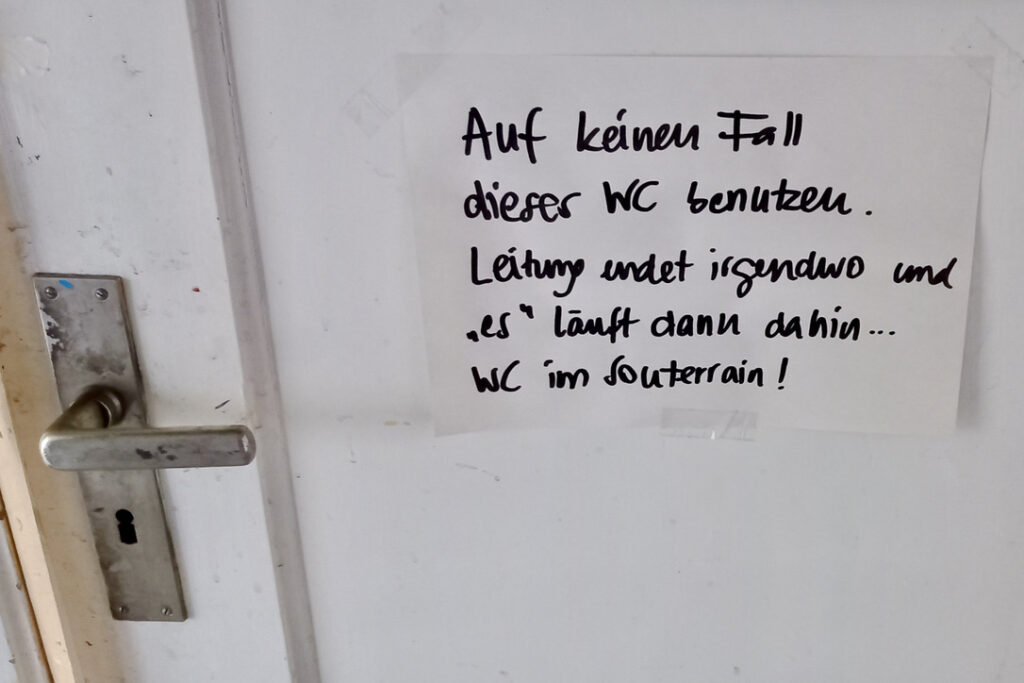 Auf keinen Fall
dieser WC benutzen.
Leitung endet irgendwo und
„es“ läuft dann dahin...
WC im Souterrain!